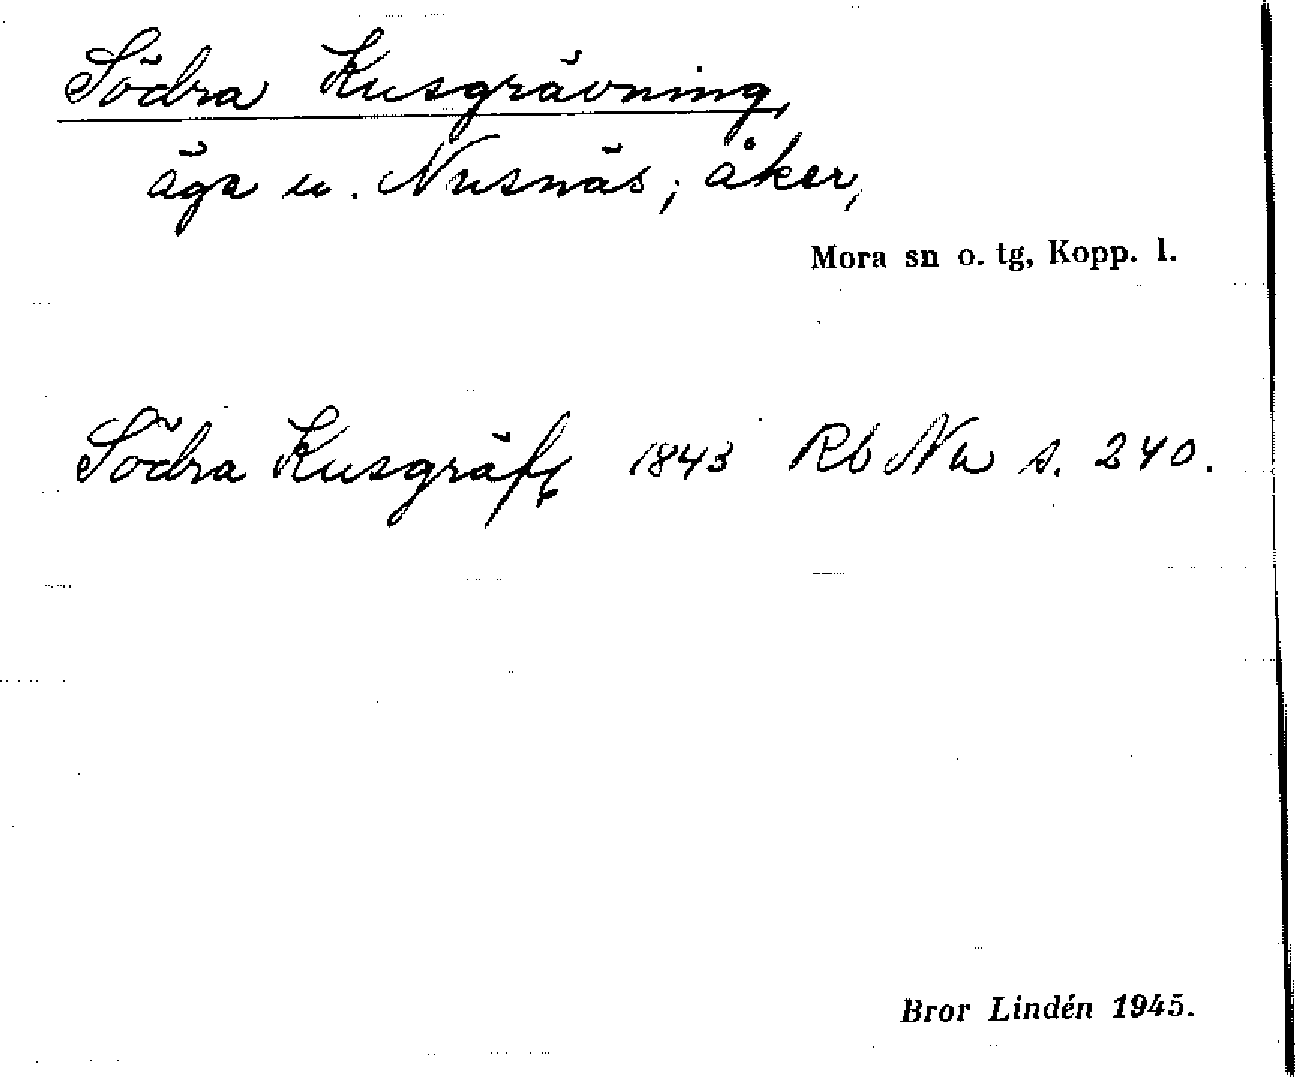 Södra Kusgrävning,
äga u. Nusnäs; åker,
Mora sn o. tg, Kopp. l.
Södra Kusgräfg 1843 Rb Nu s. 240.
Bror Lindén 1945.